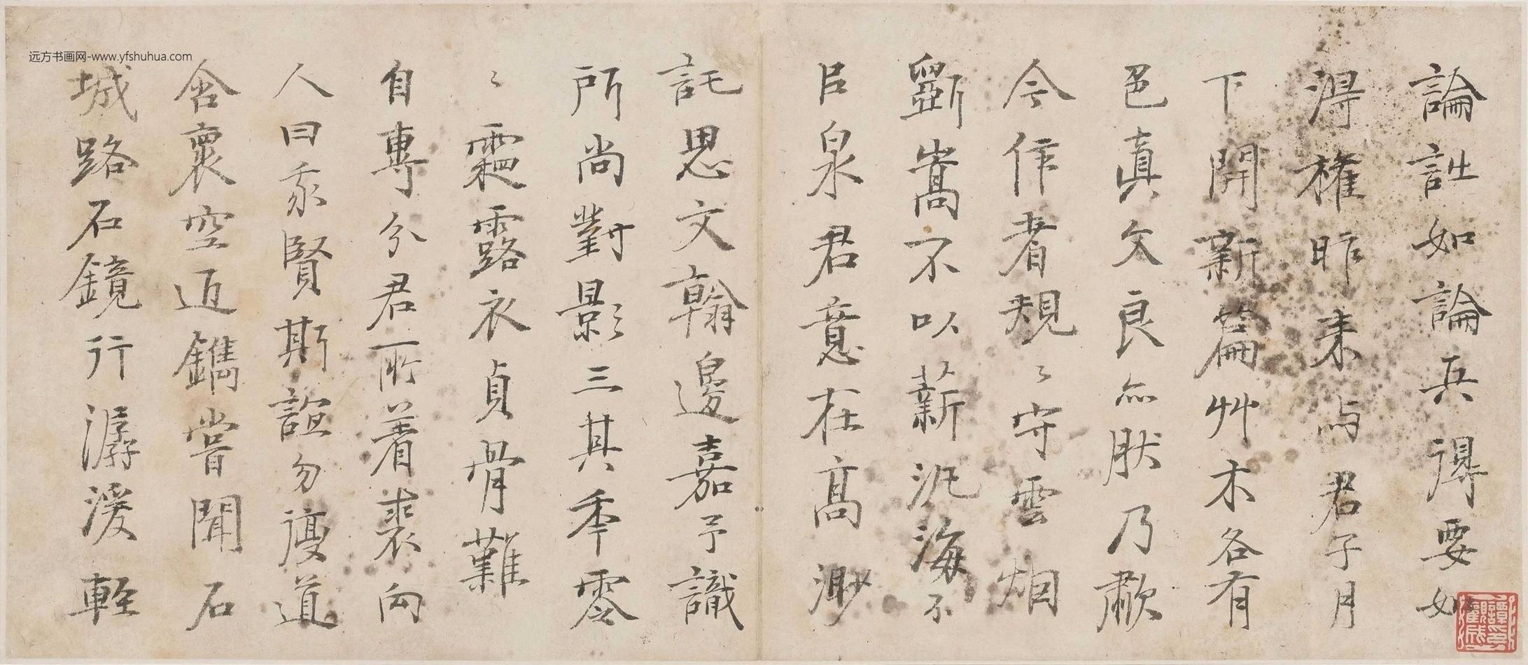 論詩如論兵得要如
淂權昨来与君子月
下開新篇艸木各有
色真久良亦肰乃歎
今作者規〻守雲烟
斵嵩不以薪汎海不
臣泉君意在高渺
託思文翰邊嘉予識
所尚對影三其秊零
〻霜露衣貞骨難
自專分君一所着裘向
人曰永賢斯誼勿復道
含裹空迊鐫嘗聞石
城路石鏡行潺湲輕
远方书画网-www.yfshuhua.com